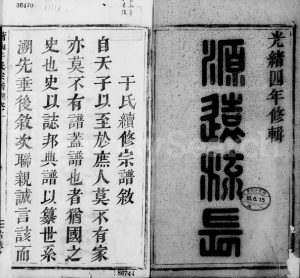 光緒四年修輯
源遠流長
10.6.15
于氏續修宗譜敘
自天子以至於庶人莫不有家
亦莫不有譜蓋譜也者猶國之
史也史以誌邦典譜以纂世系
溯先垂後敘次聯親誠言該而
36470
86744